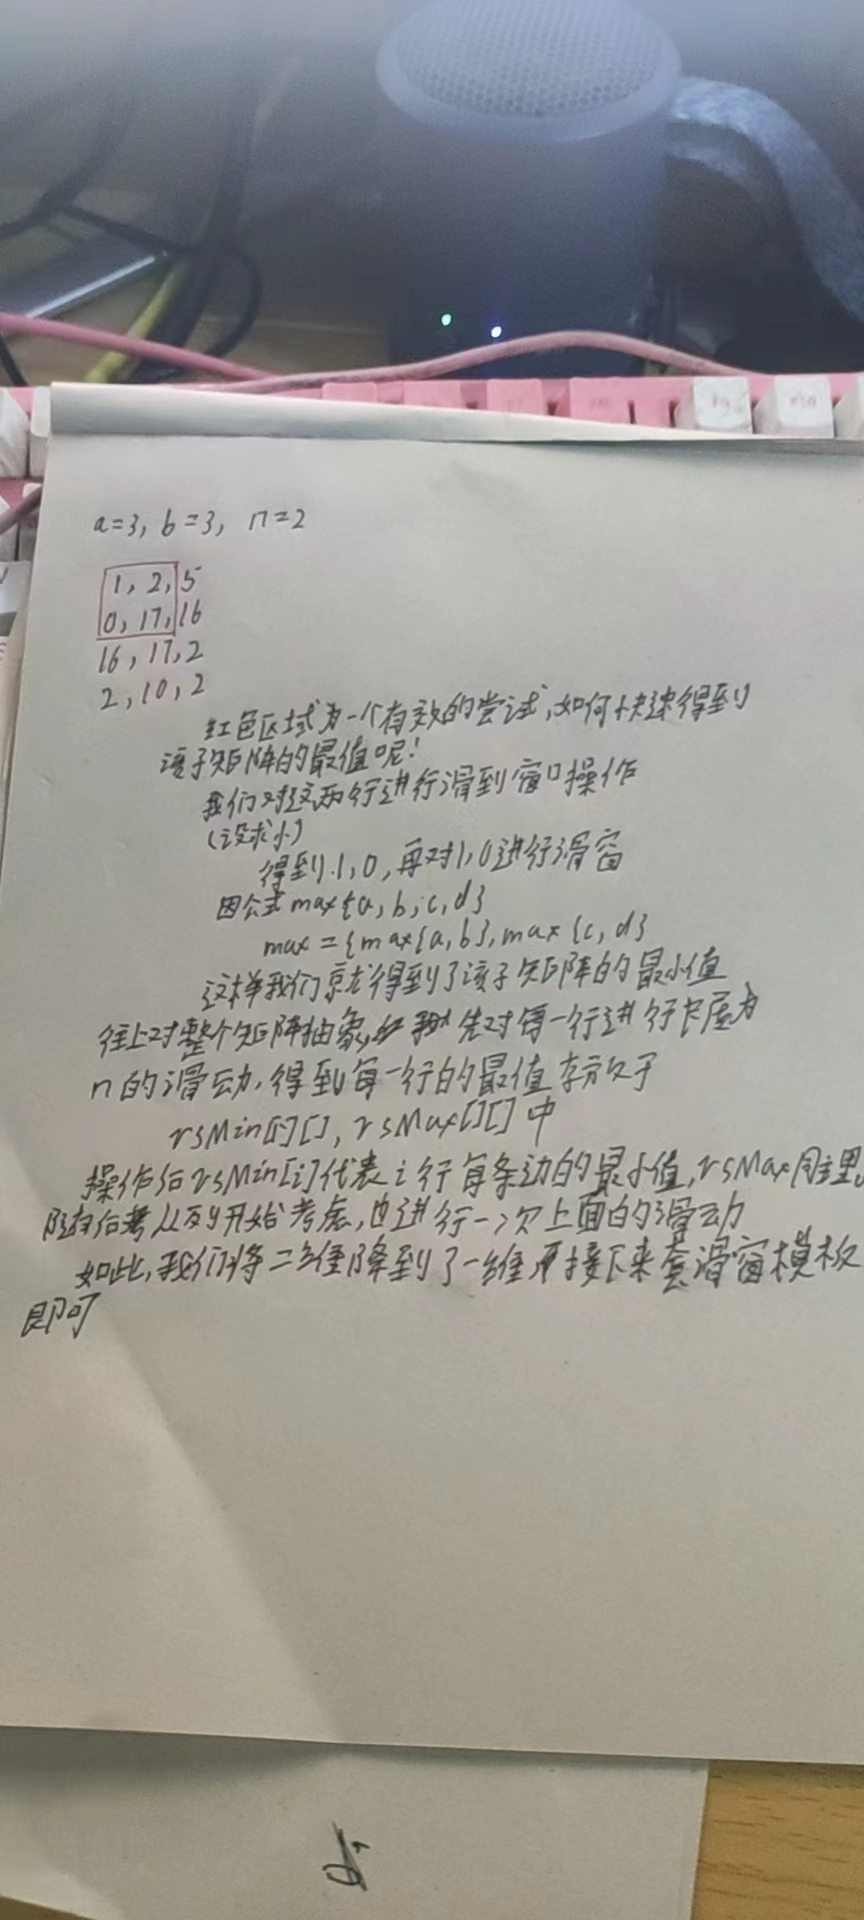 a=3, b=3, n=2
1, 2, 5
0, 17, 16
16, 17, 2
2, 10, 2
红色区域为一个有效的尝试,如何快速得到
该子矩阵的最值呢!
我们对这两行进行滑到窗口操作
(设求小)
得到1,0,再对1,0进行滑窗
因公式 max{a, b, c, d}
max={max{a,b},max{c,d}
这样我们就得到了该子矩阵的最小值
往上对整个矩阵抽象, 先对每一行进行长度为
n的滑动,得到每一行的最值存放于
rsMin[][], rsMax[][]中
操作后rsMin[i]代表i行每条边的最小值,rsMax同理。
随后考从列开始考虑,也进行一次上面的滑动
如此,我们将二维降到了一维 接下来套滑窗模板
即可